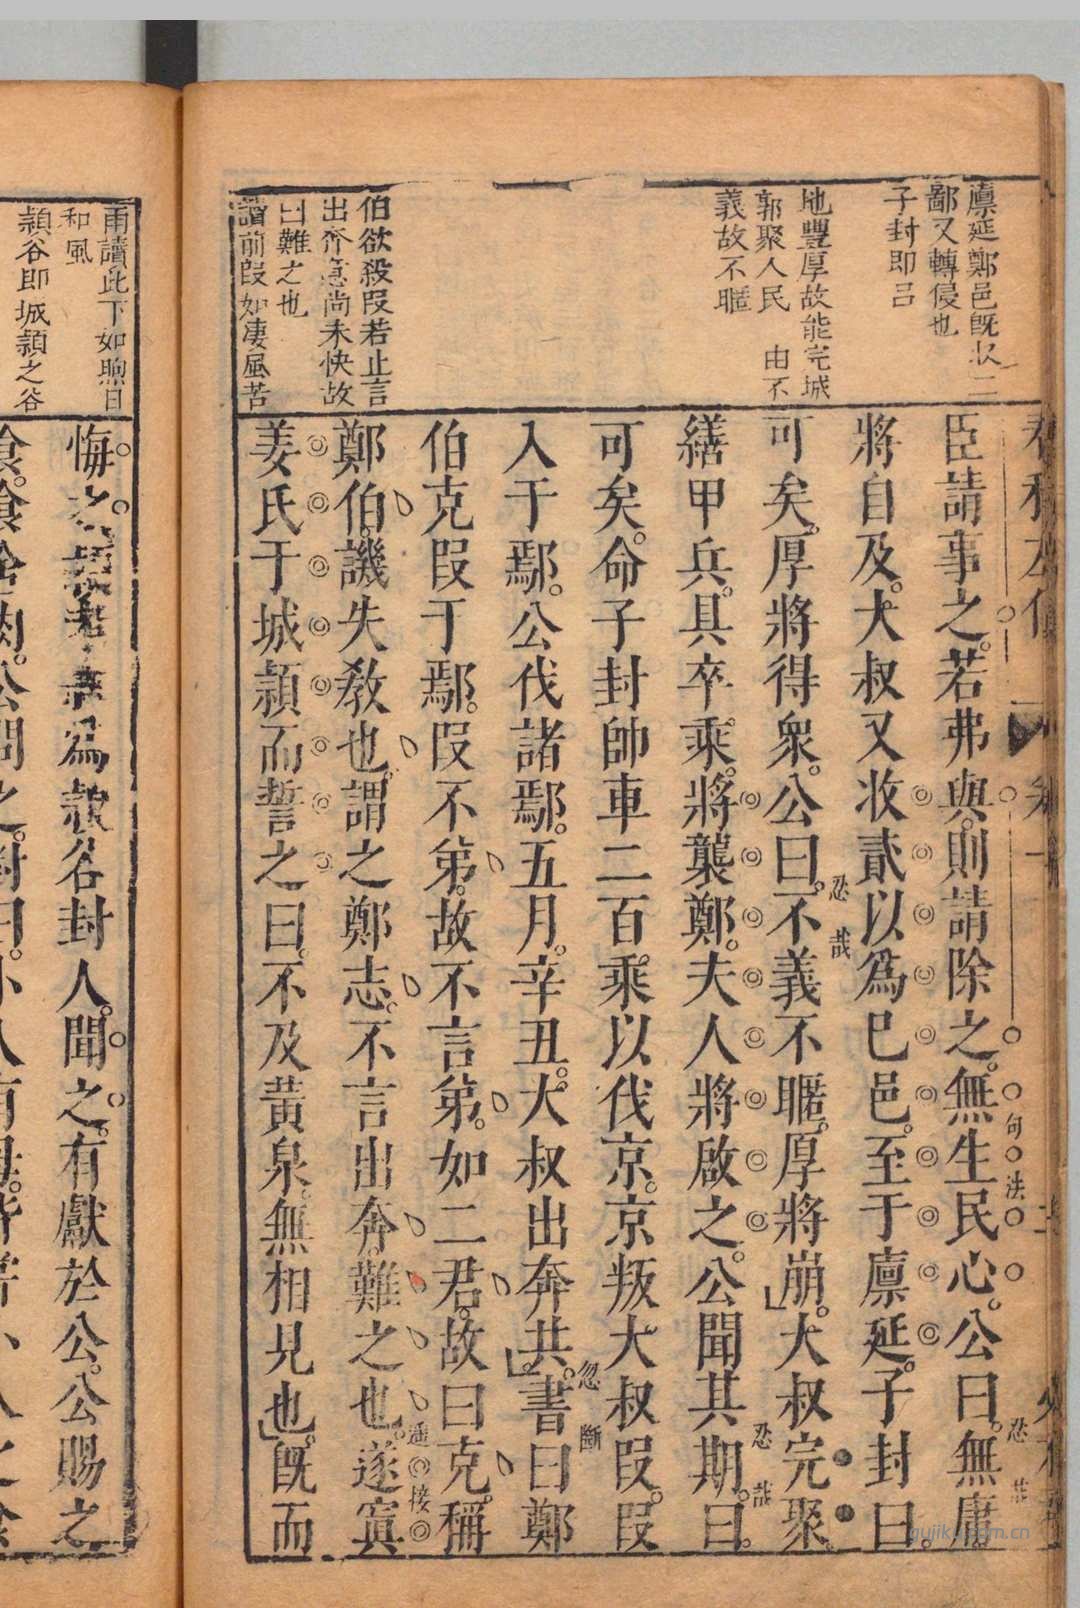 廪延鄭邑既收二
鄙又轉侵也
子封即吕
地豐厚故能完城
郭聚人民　由不
義故不暱
伯欲殺段若止言
出奔意尚未快故
曰難之也
讀前段如凄風苦
春秋左傳
卷一
臣請事之若弗與則請除之無生民心公曰無庸
句法
忍哉
將自及大叔又收貳以爲巳邑至于廪延子封曰
可矣厚將得衆公曰不義不暱厚將崩大叔完聚
忍哉
繕甲兵具卒乘將襲鄭夫人將啟之公聞其期曰
忍哉
可矣命子封帥車二百乘以伐京京叛大叔段段
入于鄢公伐諸鄢五月辛丑大叔出奔共書曰鄭
忽斷
伯克段于鄢段不弟故不言弟如二君故曰克稱
鄭伯譏失教也謂之鄭志不言出奔難之也遂寘
遥接
姜氏于城頴而誓之曰不及黃泉無相見也既而
雨讀此下如煦日
和風
頴谷即城頴之谷
悔之
爲
名封人聞之有獻於公公賜之